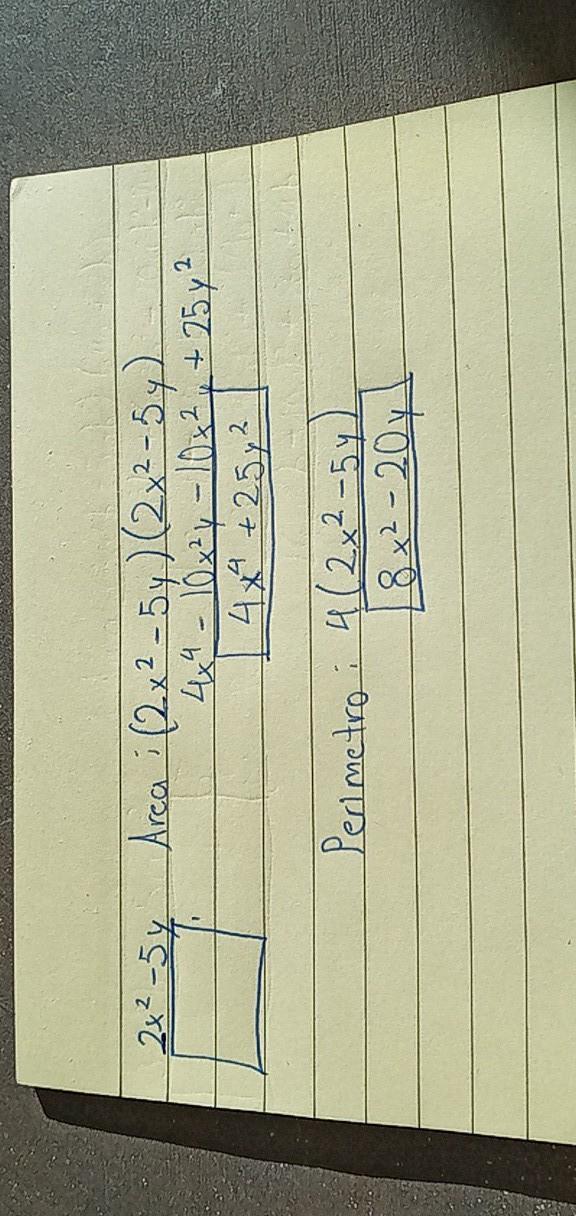 2x² - 5y
Area : (2x² - 5y)(2x² - 5y)
4x⁴ - 10x²y - 10x²y + 25y²
4x⁴ + 25y²
Perimetro : 4(2x² - 5y)
8x² - 20y